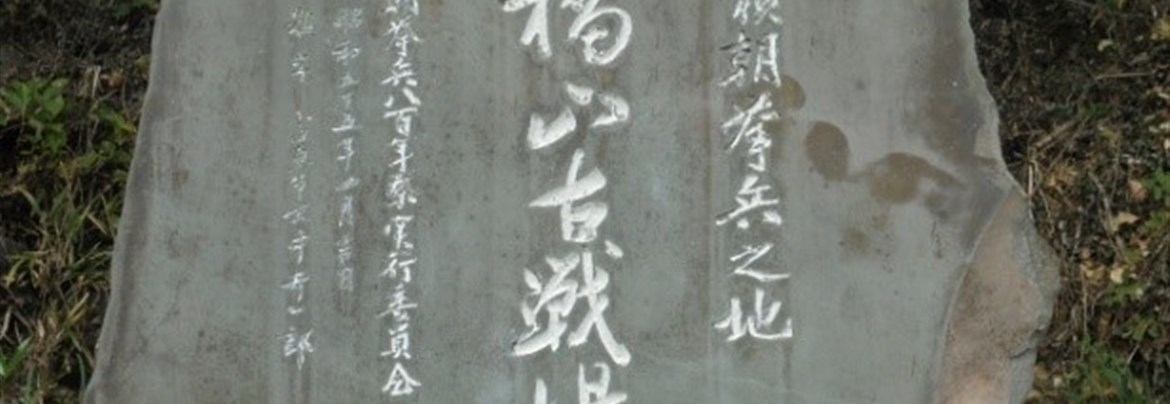 頼朝挙兵之地
橋山古戦場
朝挙兵八百年祭実行委員会
昭和五十五年四月吉日